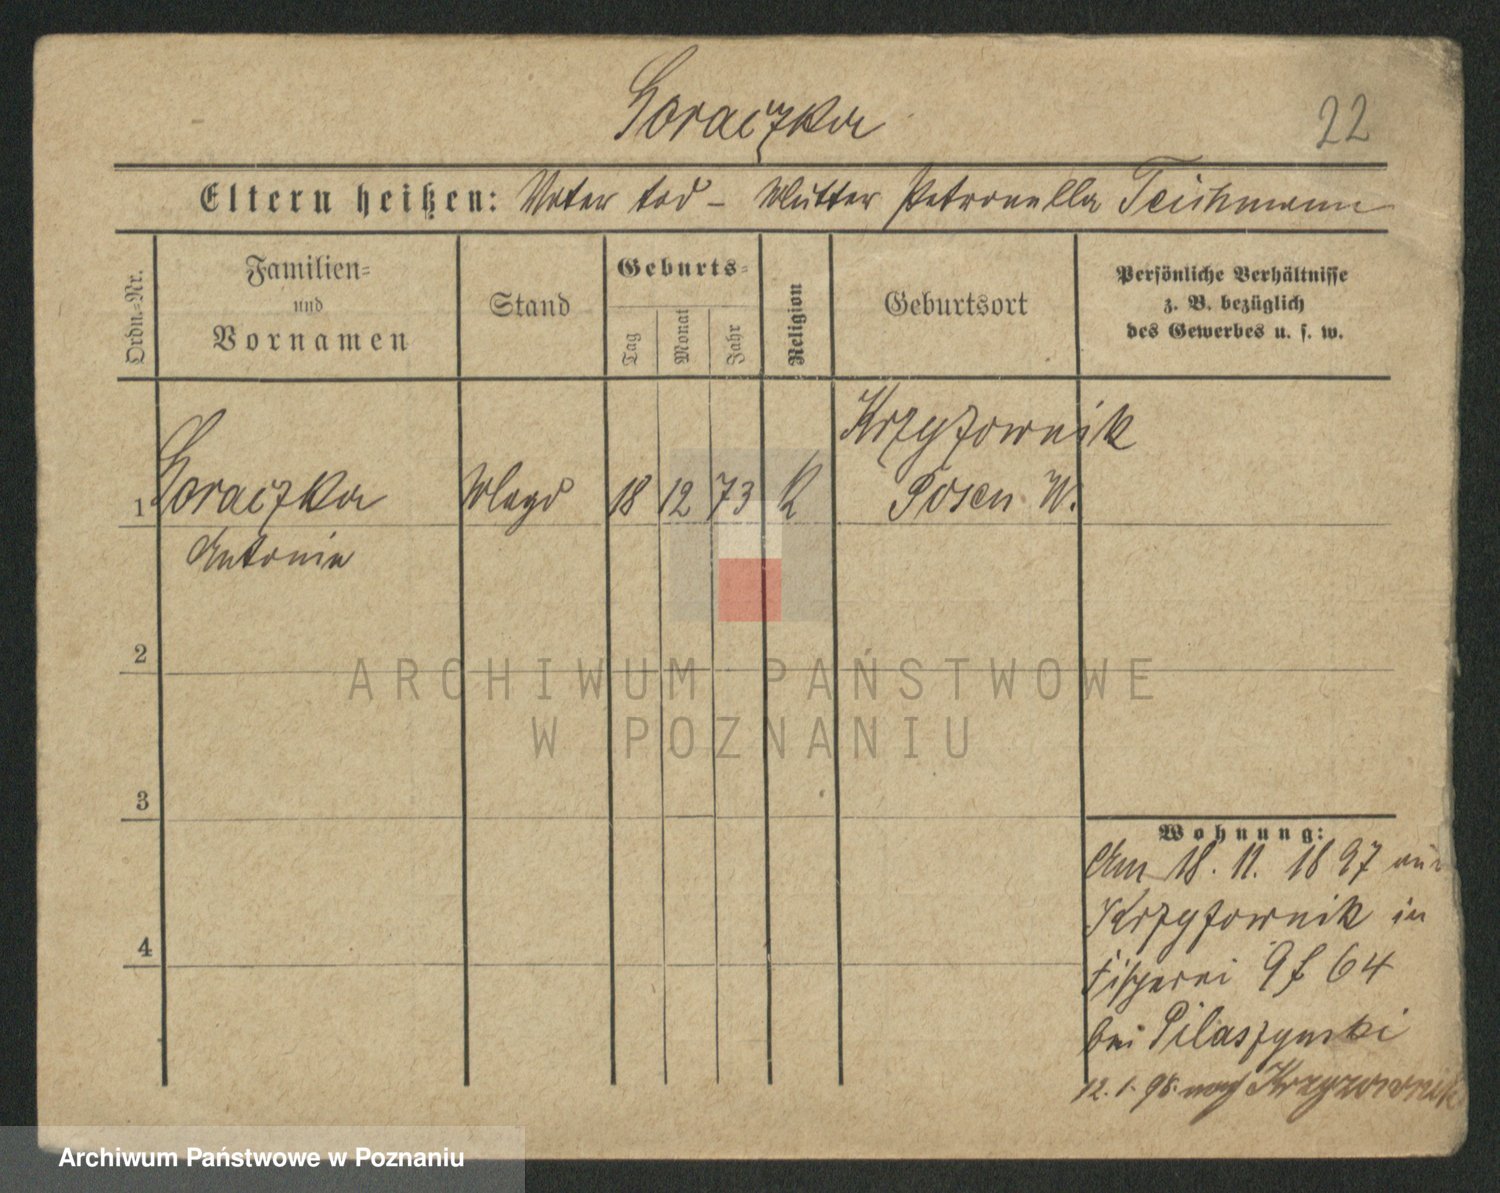 Goraczka
22
Eltern heißen: Vater tod – Mutter Petronella Teichmann
Ordn.-Nr.
Familien-
und
Vornamen
Stand
Geburts-
Tag
Monat
Jahr
Religion
Geburtsort
Persönliche Verhältnisse
z. B. bezüglich
des Gewerbes u. s. w.
Krzyzownik
1 Goraczka Magd 18 12 73 K Posen W.
Antonie
2
3
4
Wohnung:
Am 18. 11. 1897 aus
Krzyzownik in
Fischerei 9 f 64
bei Pilaszynski
12. 1. 98. nach Krzyzownik
ARCHIWUM PAŃSTWOWE
W POZNANIU
Archiwum Państwowe w Poznaniu